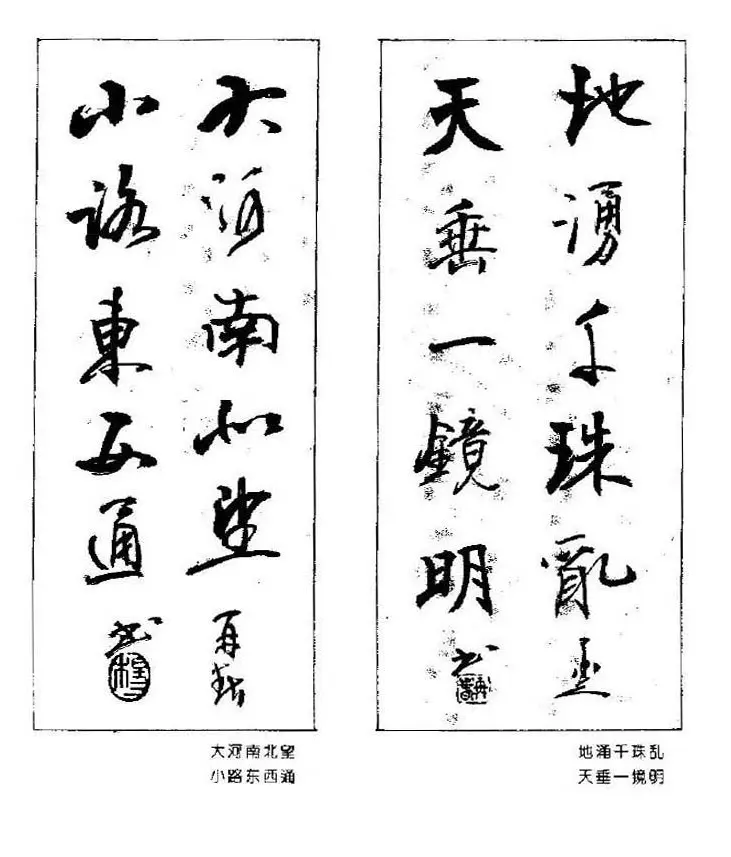 地湧千珠亂
天垂一鏡明 书
大河南北望
小路東西通 书
地涌千珠乱
天垂一镜明
大河南北望
小路东西通